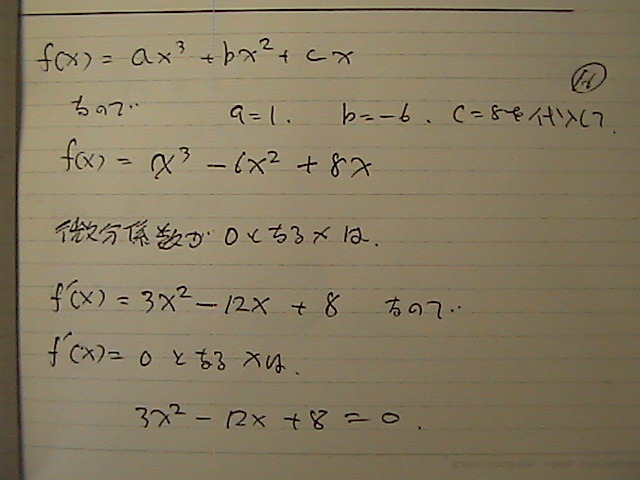 f(x) = ax³ + bx² + cx
なので a=1. b=-6. c=8を代入して.
f(x) = x³ - 6x² + 8x
微分係数が 0となる x は.
f'(x) = 3x² - 12x + 8 なので
f'(x) = 0 となる xは.
3x² - 12x + 8 = 0.